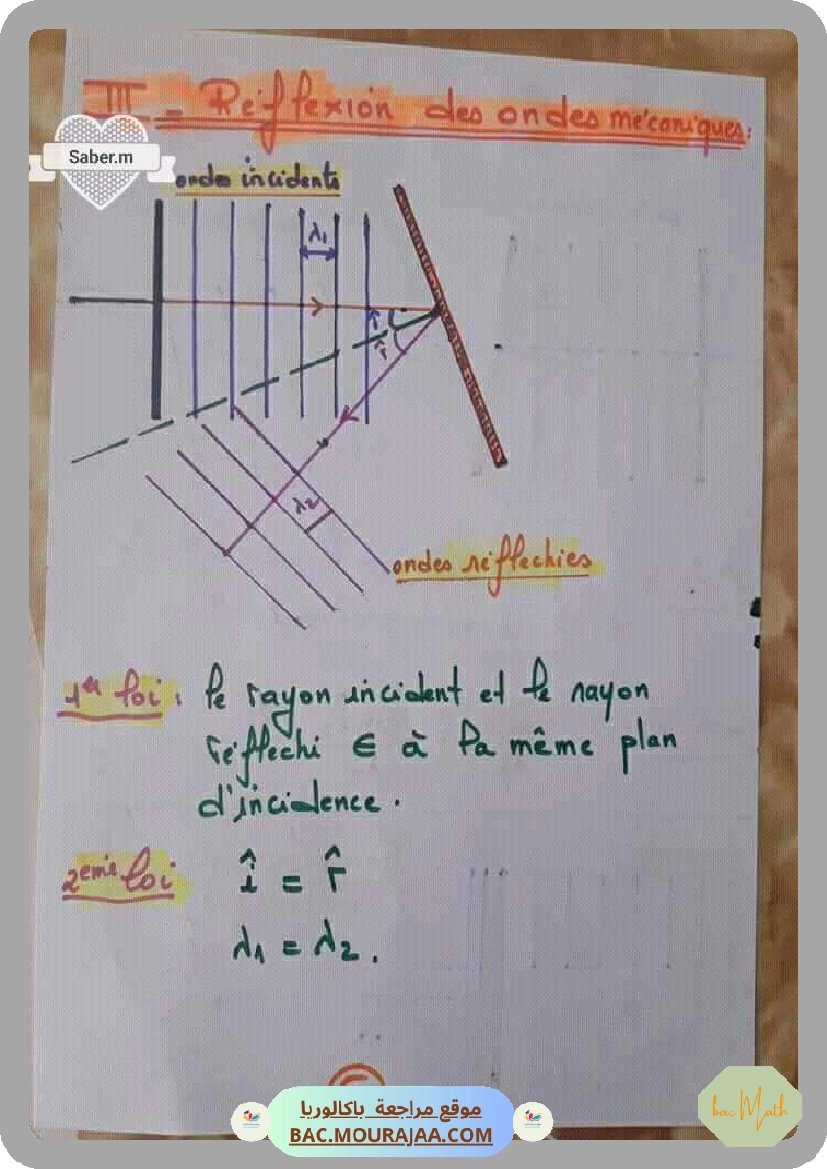 III - Réflexion des ondes mécaniques:
Saber.m
ondes incidents
λ1
i
r̂
λ2
ondes réflechies
1ère loi : le rayon incident et le rayon
réflechi ∈ à la même plan
d'incidence.
2eme loi î = r̂
λ1 = λ2.
موقع مراجعة باكالوريا
BAC.MOURAJAA.COM
bac Math